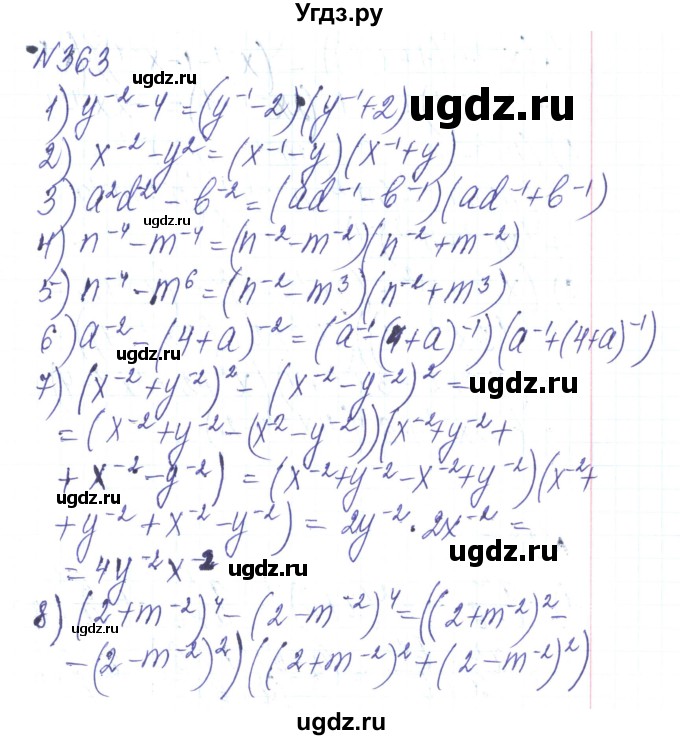 Угдз.ру
№363
1) y⁻² - 4 = (y⁻¹ - 2)(y⁻¹ + 2)
ugdz.ru
ugdz.ru
2) x⁻² - y² = (x⁻¹ - y)(x⁻¹ + y)
3) a²d⁻² - b⁻² = (ad⁻¹ - b⁻¹)(ad⁻¹ + b⁻¹)
ugdz.ru
4) n⁻⁴ - m⁻⁴ = (n⁻² - m⁻²)(n⁻² + m⁻²)
ugdz.ru
5) n⁻⁴ - m⁶ = (n⁻² - m³)(n⁻² + m³)
6) a⁻² - (4+a)⁻² = (a⁻¹ - (4+a)⁻¹)(a⁻¹ + (4+a)⁻¹)
ugdz.ru
7) (x⁻² + y⁻²)² - (x⁻² - y⁻²)² =
ugdz.ru
= (x⁻² + y⁻² - (x² - y⁻²))(x⁻² + y⁻² +
+ x⁻² - y⁻²) = (x⁻² + y⁻² - x⁻² + y⁻²)(x⁻² +
ugdz.ru
+ y⁻² + x⁻² - y⁻²) = 2y⁻² · 2x⁻² =
ugdz.ru
= 4y⁻²x⁻²
ugdz.ru
8) (2 + m⁻²)⁴ - (2 - m⁻²)⁴ = ((2 + m⁻²)² -
ugdz.ru
- (2 - m⁻²)²)((2 + m⁻²)² + (2 - m⁻²)²)
ugdz.ru
ugdz.ru